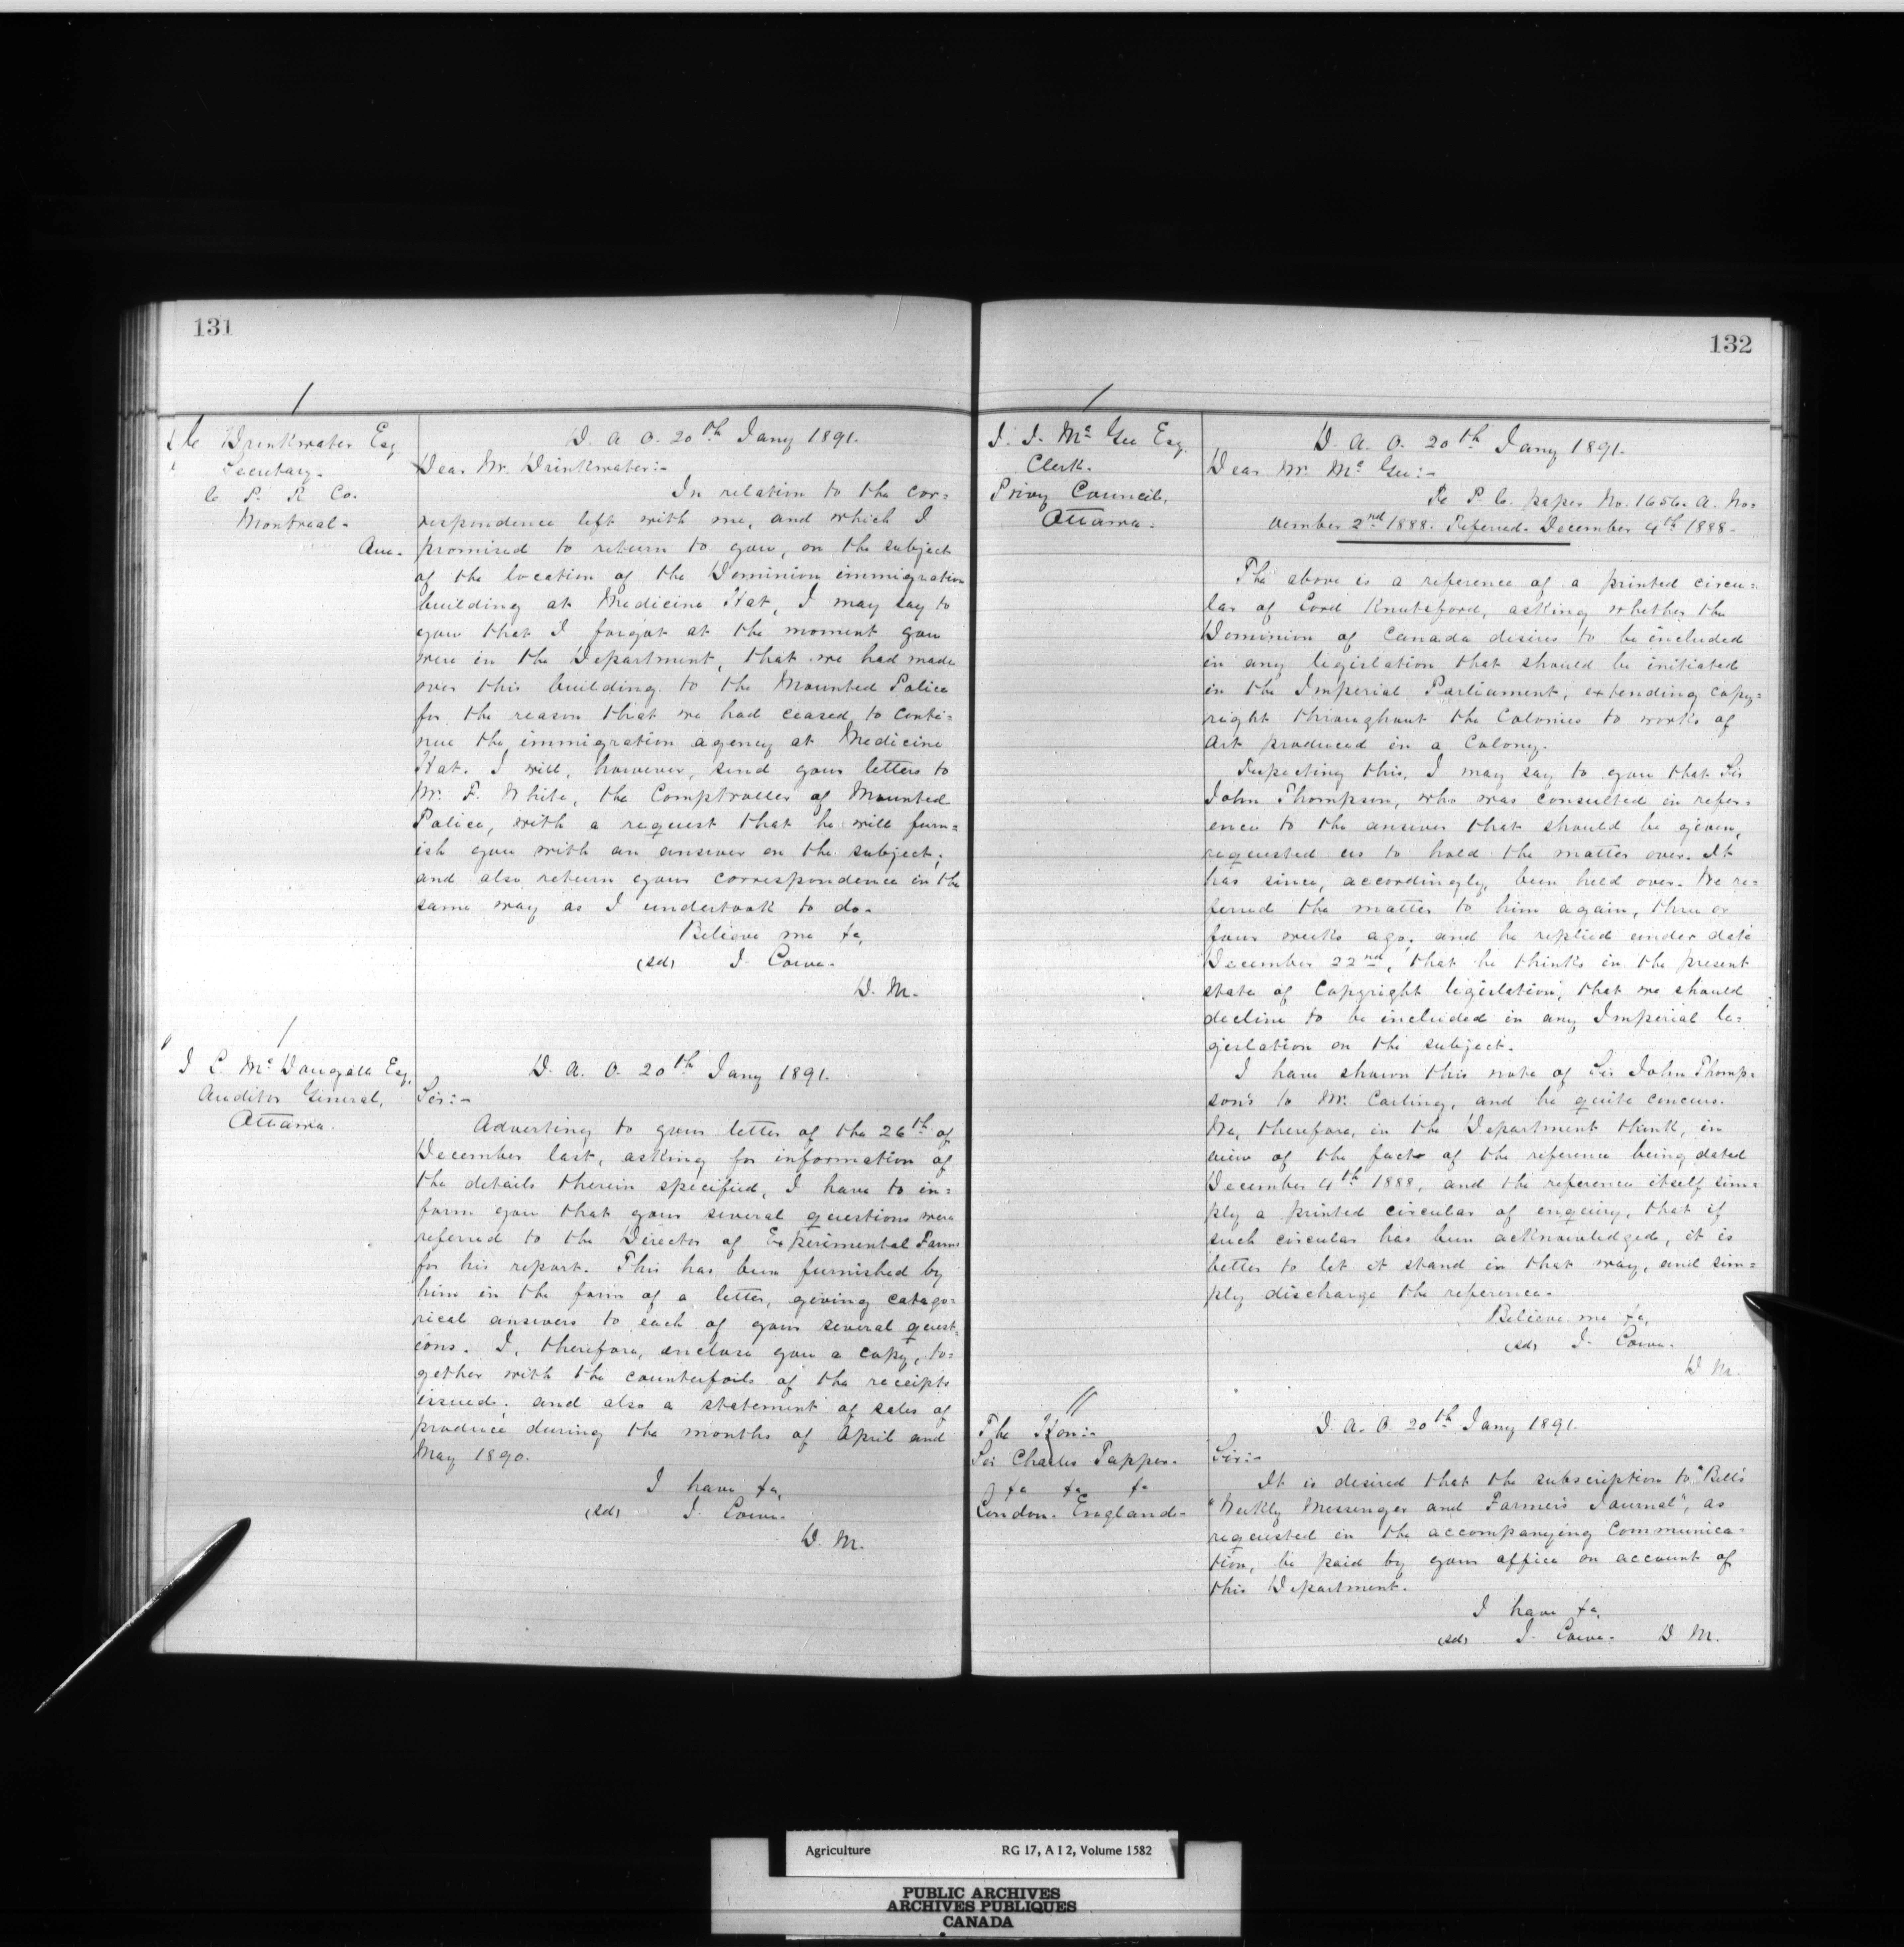 131
C Drinkwater Esq
Secretary.
C. P. R. Co.
Montreal.
D. A. O. 20th Jany 1891.
Dear Mr. Drinkwater:-
In relation to the cor=
respondence left with me, and which I
promised to return to you, on the subject
of the location of the Dominion immigration
building at Medicine Hat, I may say to
you that I forgot at the moment you
were in the Department, that we had made
over this building to the Mounted Police
for the reason that we had ceased to conti=
nue the immigration agency at Medicine
Hat. I will, however, send your letters to
Mr. F. White, the Comptroller of Mounted
Police, with a request that he will furn=
ish you with an answer on the subject;
and also return your correspondence in the
same way as I undertook to do.
Believe me &c,
(sd) J. Lowe.
D. M.
J L. Mc Dougall Esq,
Auditor General,
Ottawa.
D. A. O. 20th Jany 1891.
Sir:-
Adverting to your letter of the 26th of
December last, asking for information of
the details therein specified, I have to in=
form you that your several questions were
referred to the Director of Experimental Farms
for his report. This has been furnished by
him in the form of a letter, giving catego=
rical answers to each of your several quest=
ions. I, therefore, enclose you a copy, to=
gether with the counterfoils of the receipts
issued; and also a statement of sales of
produce during the months of April and
May 1890.
I have &c,
(sd) J. Lowe.
D. M.
132
J. J. Mc Gee Esq,
Clerk.
Privy Council,
Ottawa.
D. A. O. 20th Jany 1891.
Dear Mr. Mc Gee:-
Re P. C. paper No. 1656. A. No=
vember 2nd 1888. Referred. December 4th 1888.
The above is a reference of a printed circu=
lar of Lord Knutsford, asking whether the
Dominion of Canada desires to be included
in any legislation that should be initiated
in the Imperial Parliament, extending copy=
right throughout the Colonies to works of
Art produced in a Colony.
Respecting this, I may say to you that Sir
John Thompson, who was consulted in refer=
ence to the answer that should be given,
requested us to hold the matter over. It
has since, accordingly, been held over. We re=
ferred the matter to him again, three or
four weeks ago; and he replied under date
December 22nd, that he thinks in the present
state of Copyright legislation, that we should
decline to be included in any Imperial le=
gislation on the subject.
I have shown this note of Sir John Thomp=
son's to Mr. Carling, and he quite concurs.
We, therefore, in the Department think, in
view of the fact of the reference being dated
December 4th 1888, and the reference itself sim=
ply a printed circular of enquiry, that if
such circular has been acknowledged, it is
better to let it stand in that way, and sim=
ply discharge the reference.
Believe me &c,
(sd) J. Lowe.
D. M.
The Hon:-
Sir Charles Tupper.
&c &c &c
London. England.
D. A. O. 20th Jany 1891.
Sir:-
It is desired that the subscription to "Bell's
"Weekly Messenger and Farmer's Journal", as
requested in the accompanying Communica=
tion, be paid by your office on account of
this Department.
I have &c,
(sd) J. Lowe. D. M.
Agriculture RG 17, A I 2, Volume 1582
PUBLIC ARCHIVES
ARCHIVES PUBLIQUES
CANADA